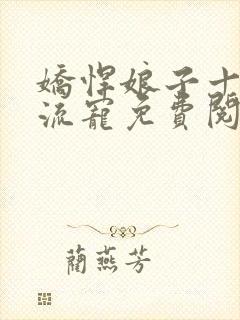 嬌悍娘子十
流寵免費閱
蘭燕芳